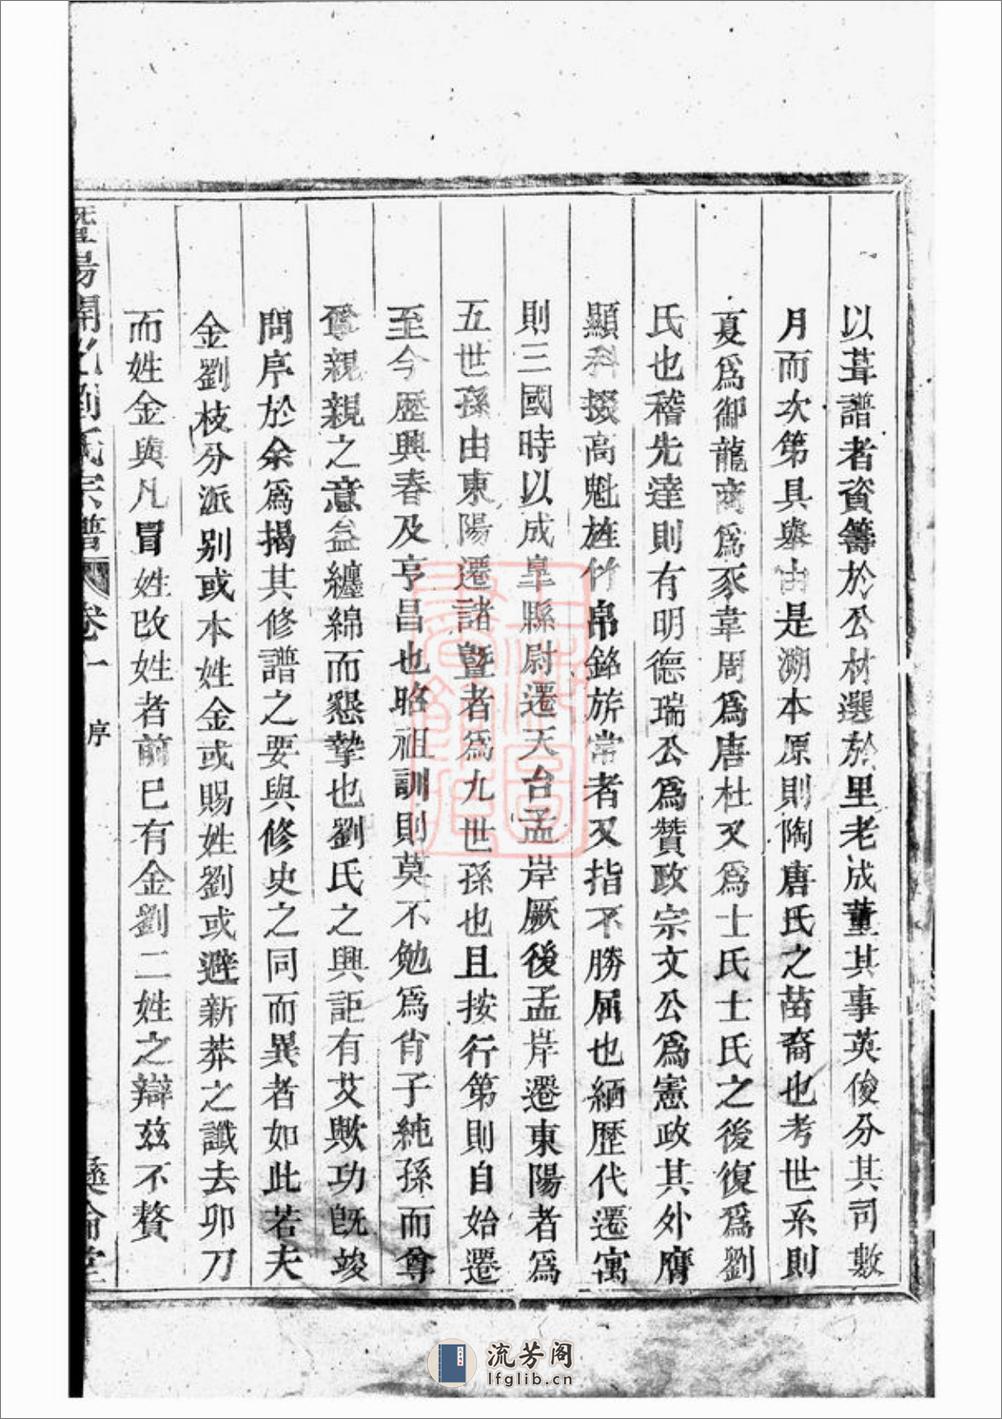 以葺譜者資籌於公材選於里老成董其事英俊分其司數
月而次第具舉由是溯本原則陶唐氏之苗裔也考世系則
夏爲御龍商爲豕韋周爲唐杜又爲士氏士氏之後復爲劉
氏也稽先達則有明德瑞公爲贊政宗文公爲憲政其外膺
顯科掇高魁旌竹帛銘旂常者又指不勝屈也緬歷代遷寓
則三國時以成臯縣尉遷天台孟岸厥後孟岸遷東陽者爲
五世孫由東陽遷諸暨者爲九世孫也且按行第則自始遷
至今歷興春及亨昌也昭祖訓則莫不勉爲肖子純孫而尊
尊親親之意益纏綿而懇摯也劉氏之興詎有艾歟功旣竣
問序於余爲揭其修譜之要與修史之同而異者如此若夫
金劉枝分派別或本姓金或賜姓劉或避新莽之讖去卯刀
而姓金與凡冒姓改姓者前已有金劉二姓之辯茲不贅
暨陽開化劉氏宗譜 卷一 序 彝倫堂
流芳阁
lfglib.cn